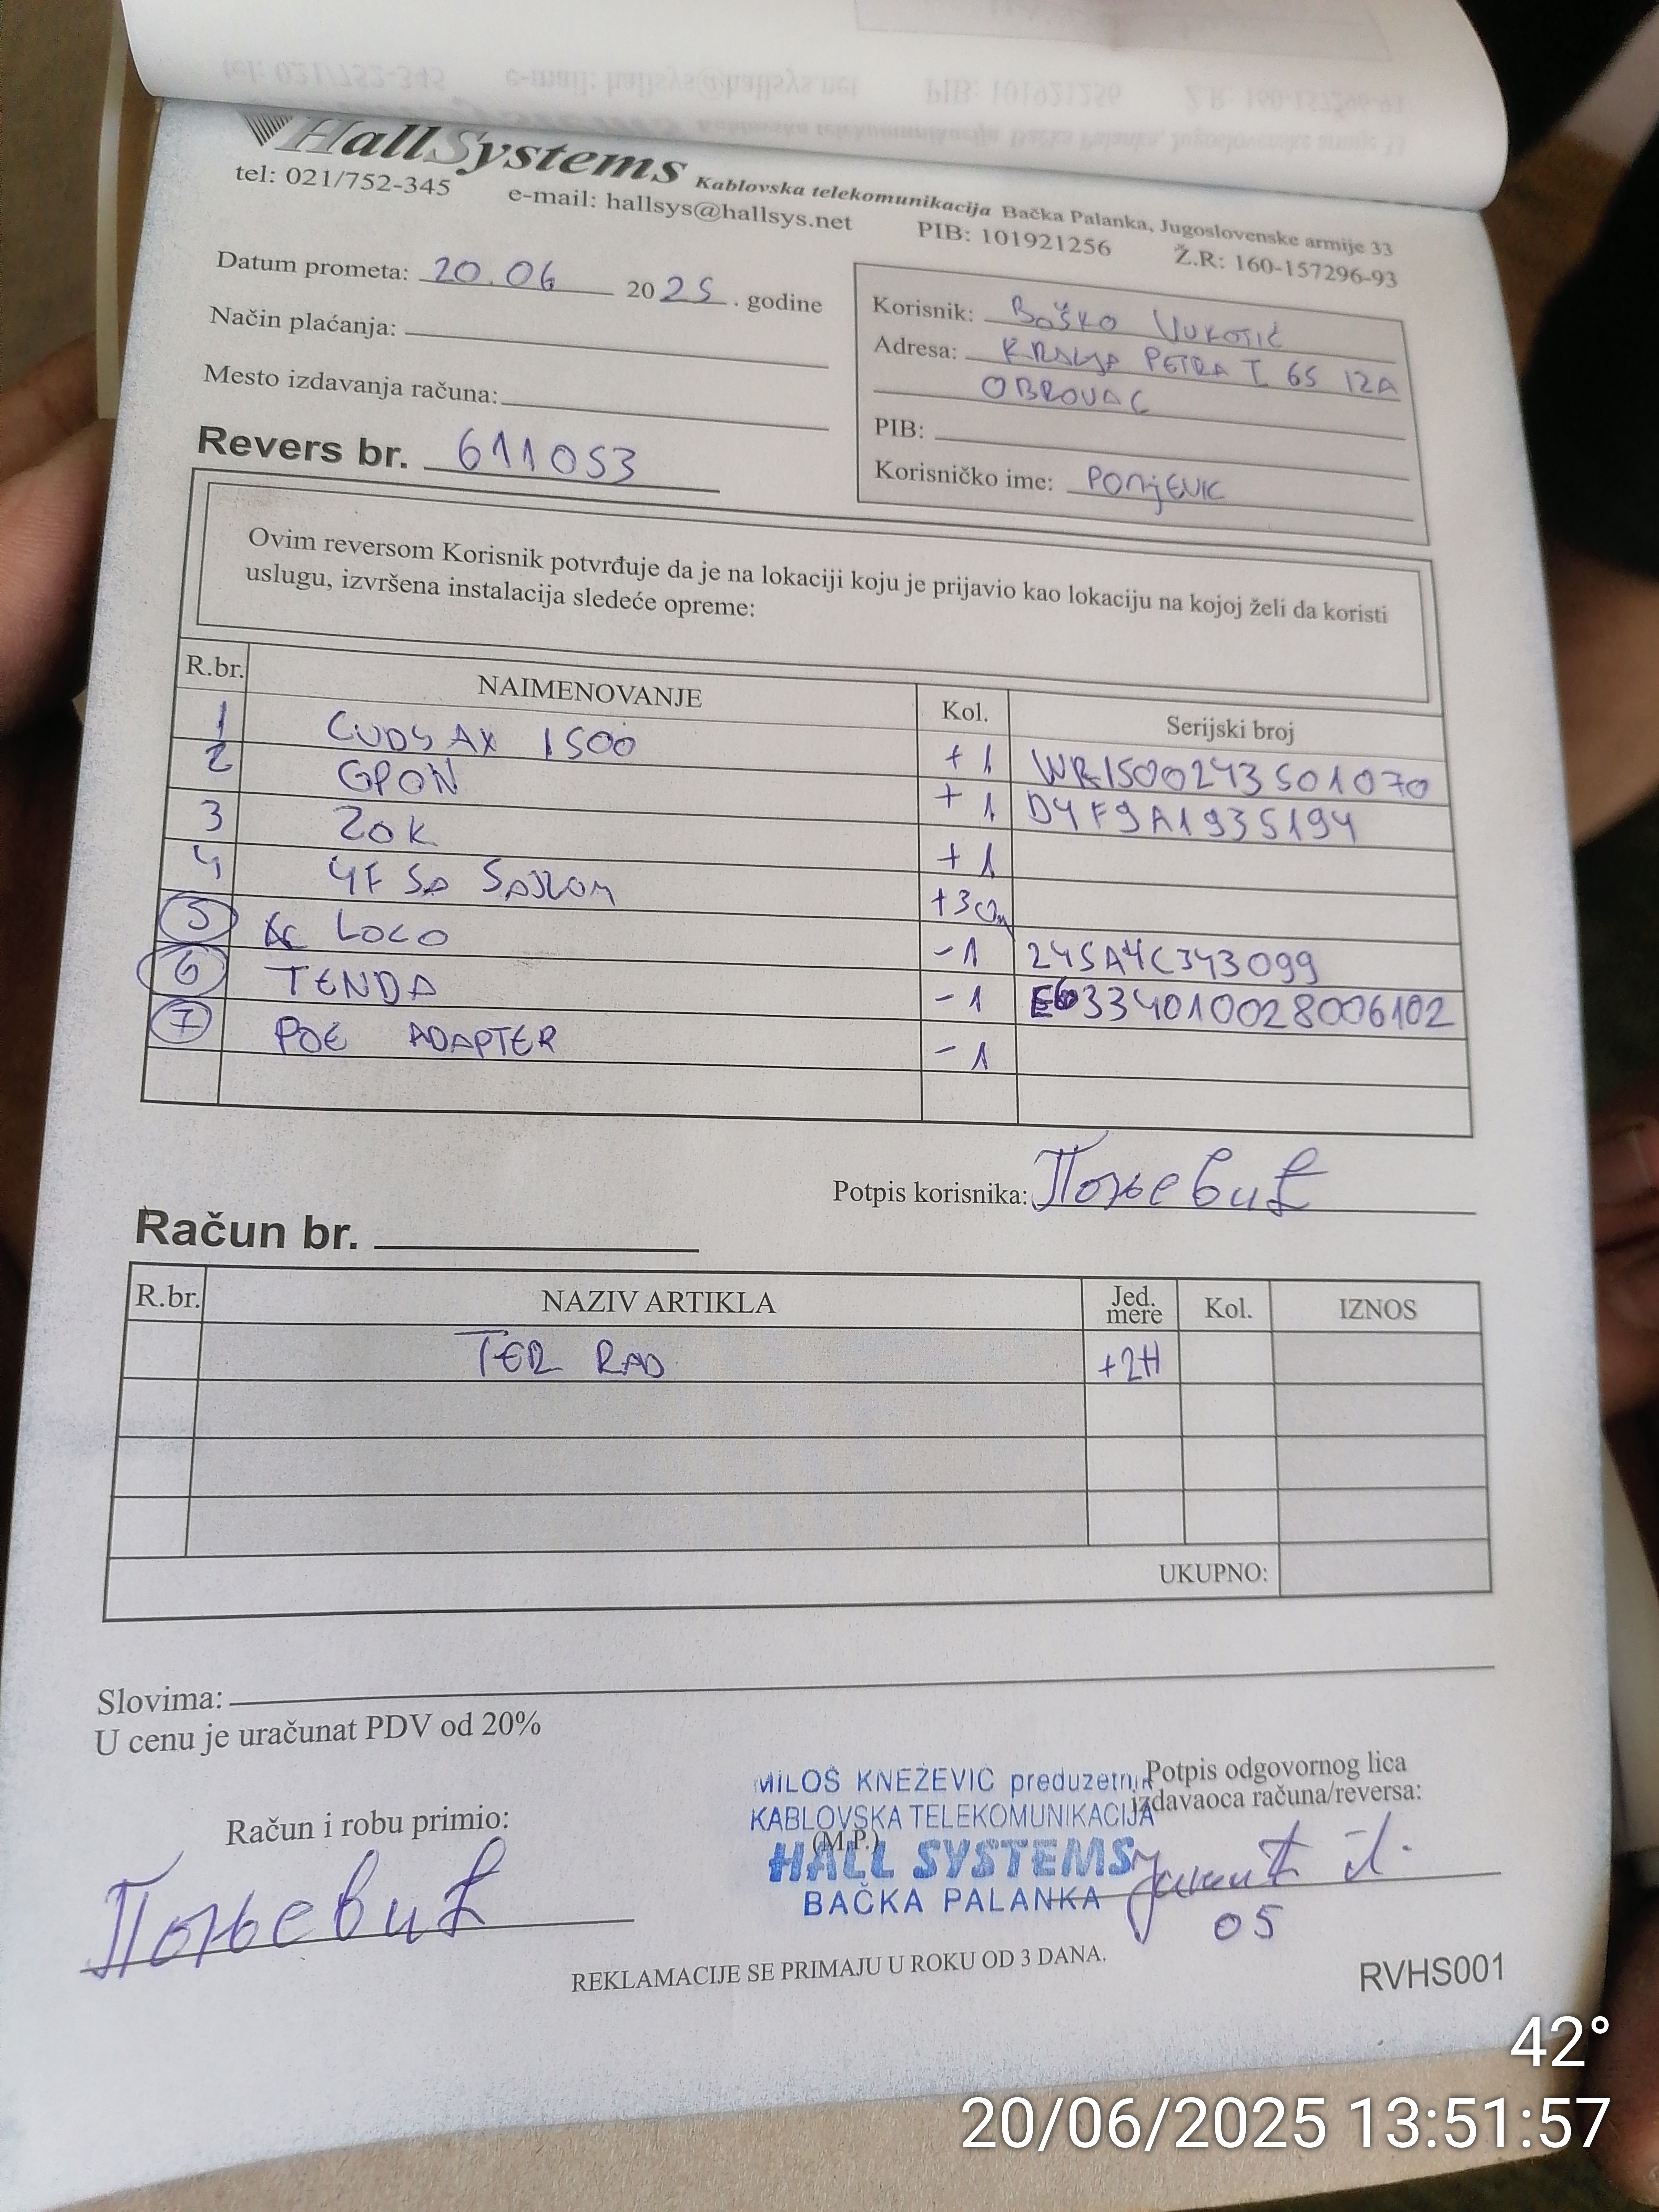 HallSystems Kablovska telekomunikacija Bačka Palanka, Jugoslovenske armije 33
tel: 021/752-345 e-mail: hallsys@hallsys.net PIB: 101921256 Ž.R: 160-157296-93
Datum prometa: 20.06 2025. godine
Način plaćanja:
Mesto izdavanja računa:
Revers br. 611053
Korisnik: Boško Vukotić
Adresa: KRALJA PETRA I 65 12A
OBROVAC
PIB:
Korisničko ime: PONJEVIC
Ovim reversom Korisnik potvrđuje da je na lokaciji koju je prijavio kao lokaciju na kojoj želi da koristi
uslugu, izvršena instalacija sledeće opreme:
R.br. NAIMENOVANJE Kol. Serijski broj
1 CUDY AX 1500 +1 WR1500243501070
2 GPON +1 D4F9A1935194
3 ZOK +1
4 4F SA SAJLOM +30m
5 AC LOCO -1 245A4C343099
6 TENDA -1 E60334010028006102
7 POE ADAPTER -1
Potpis korisnika: Поњевић
Račun br.
R.br. NAZIV ARTIKLA Jed. mere Kol. IZNOS
TER RAD +2H
UKUPNO:
Slovima:
U cenu je uračunat PDV od 20%
Račun i robu primio:
Поњевић
MILOŠ KNEŽEVIĆ preduzetnik
KABLOVSKA TELEKOMUNIKACIJA
(M.P.)
HALL SYSTEMS
BAČKA PALANKA
Potpis odgovornog lica
izdavaoca računa/reversa:
05
REKLAMACIJE SE PRIMAJU U ROKU OD 3 DANA.
RVHS001
42°
20/06/2025 13:51:57